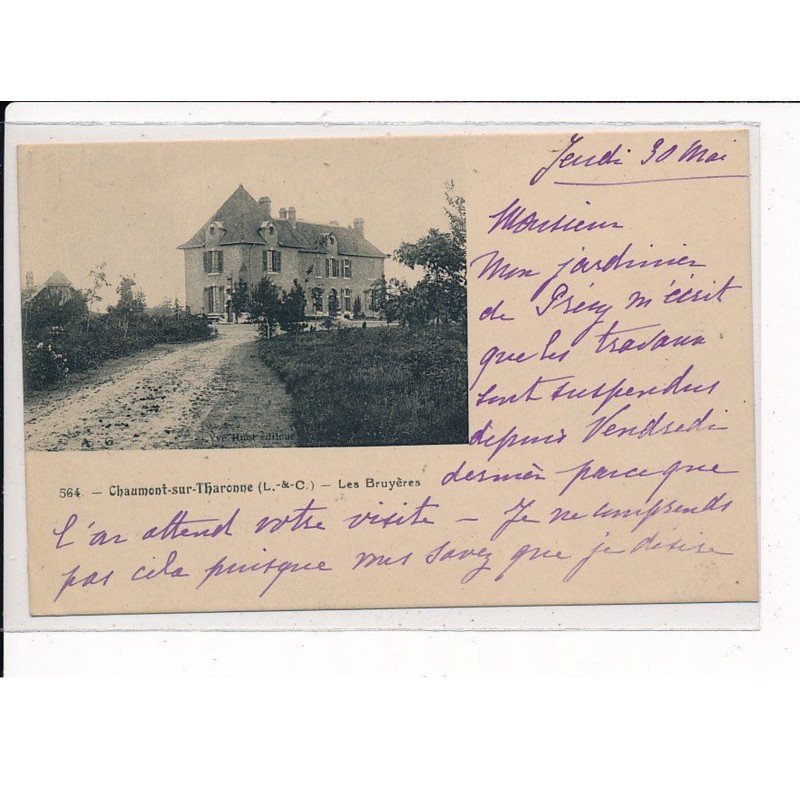 Jeudi 30 Mai
Monsieur
Mon jardinier
de Précy m'écrit
que les travaux
sont suspendus
depuis Vendredi
dernier parce que
l'on attend votre visite — Je ne comprends
pas cela puisque vous savez que je désire
A. G
Vve Huet éditeur
564. — Chaumont-sur-Tharonne (L.-&-C.) — Les Bruyères